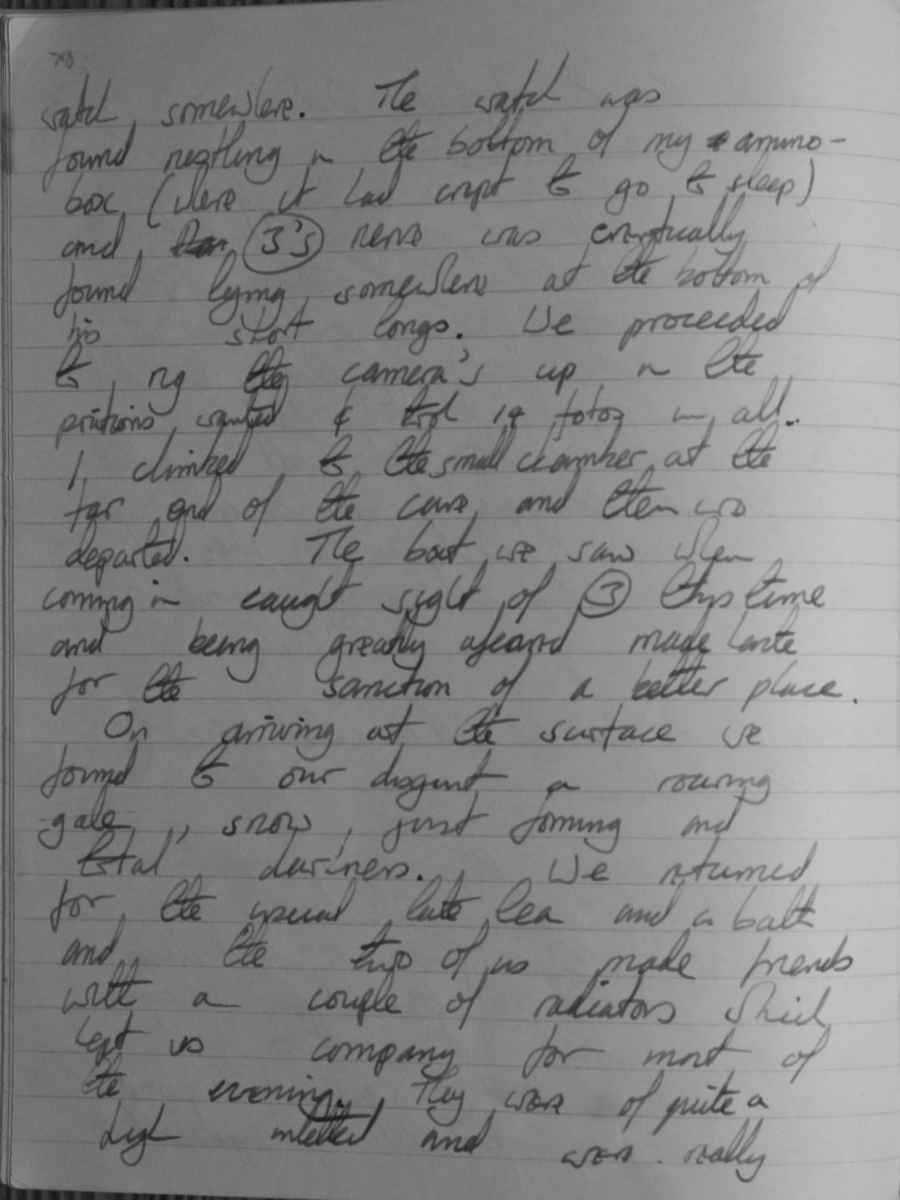 watch somewhere. The watch was
found nestling in the bottom of my ammo-
box, (where it had crept to go to sleep)
and, 3's nerve was eventually
found lying somewhere at the bottom of
his short longs. We proceeded
to rig the camera's up in the
positions wanted & took 14 fotos in all.
I climbed to the small chamber at the
far end of the cave and then we
departed. The boat we saw when
coming in caught sight of 3 this time
and being greatly afeared made haste
for the sanction of a better place.
On arriving at the surface we
found to our disgust a roaring
gale, snow, just forming and
total darkness. We returned
for the usual late tea and a bath
and the two of us made friends
with a couple of radiators which
kept us company for most of
the evening. They were of quite a
high intellect and were really